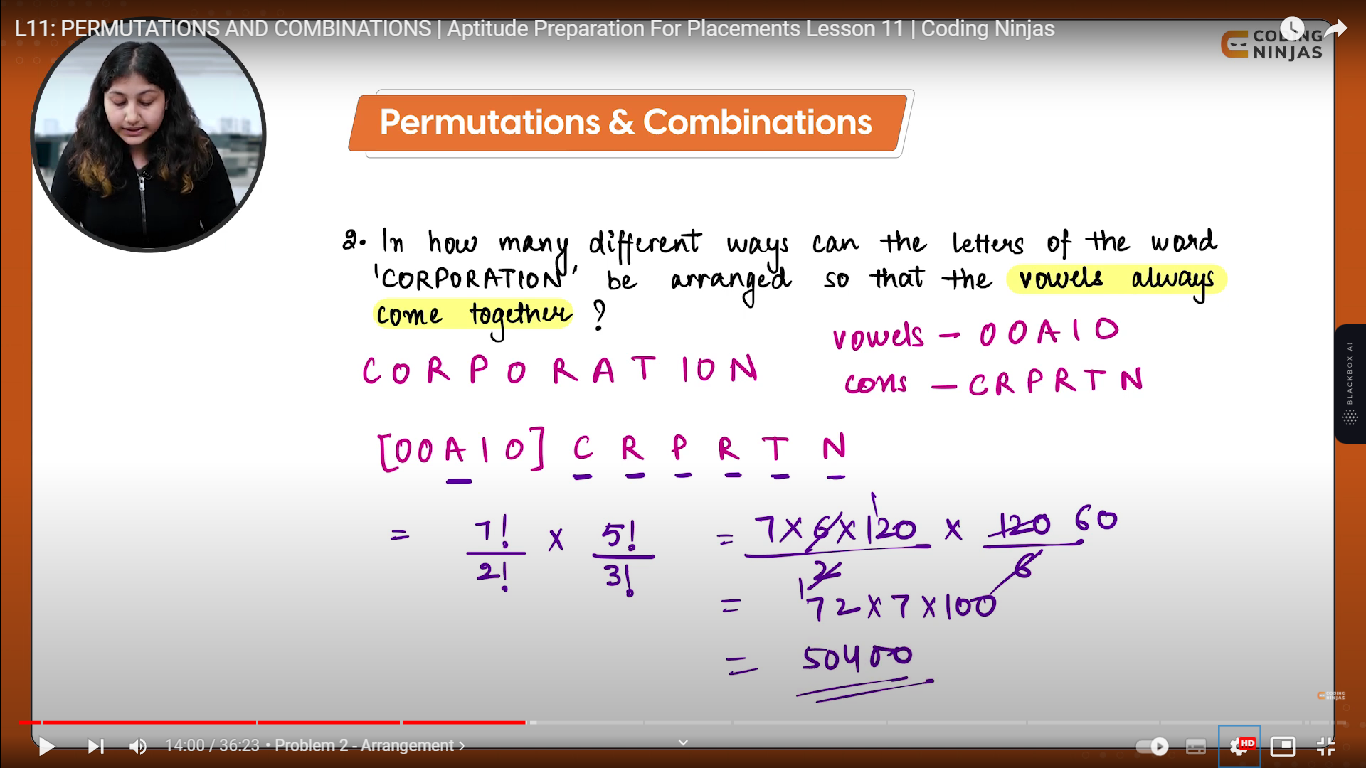 L11: PERMUTATIONS AND COMBINATIONS | Aptitude Preparation For Placements Lesson 11 | Coding Ninjas
CODING
NINJAS
Permutations & Combinations
2. In how many different ways can the letters of the word
'CORPORATION' be arranged so that the vowels always
come together ?
vowels - OOAIO
C O R P O R A T I O N
cons - CRPRTN
[OOAIO] C R P R T N
= 7!/2! × 5!/3! = 7×6×120/2 × 120/6 60
1 1
= 72×7×100
= 50400
CODING
NINJAS
BLACKBOX AI
14:00 / 36:23 • Problem 2 - Arrangement >
HD